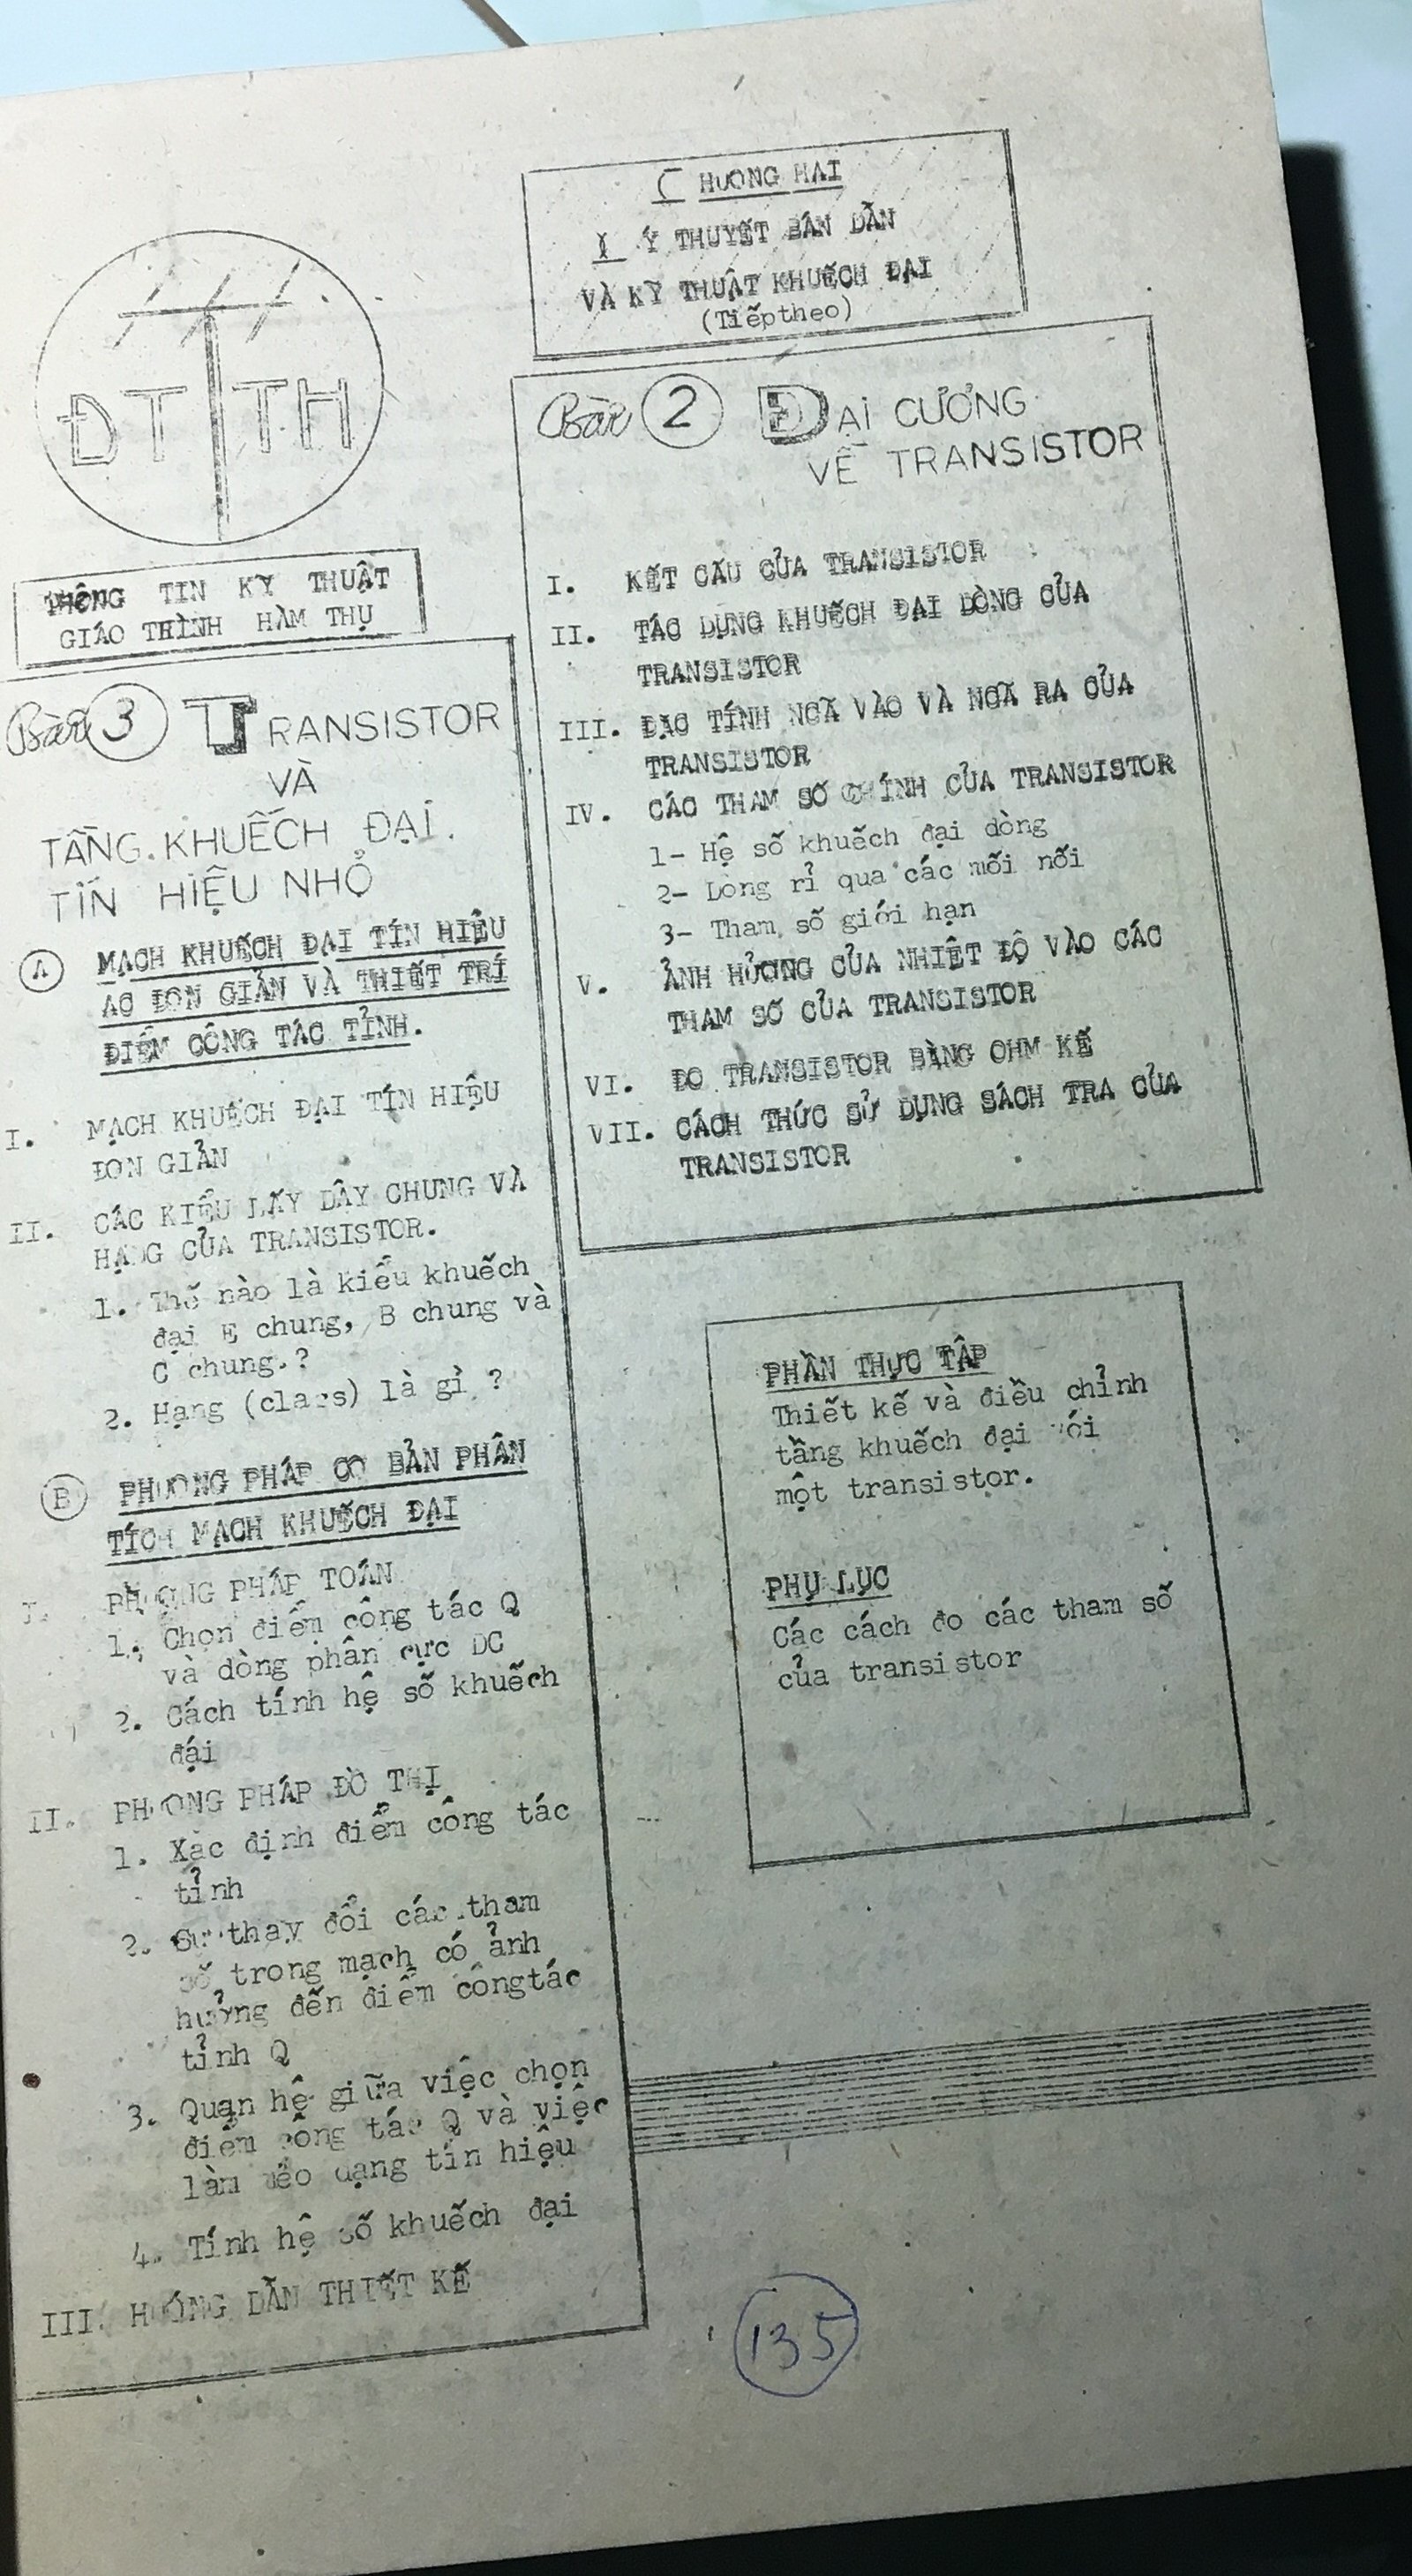 CHƯƠNG HAI
LÝ THUYẾT BÁN DẪN
VÀ KỸ THUẬT KHUẾCH ĐẠI
(Tiếptheo)
ĐT TH
THÔNG TIN KỸ THUẬT
GIÁO TRÌNH HÀM THỤ
Bài 2 ĐẠI CƯƠNG
VỀ TRANSISTOR
I. KẾT CẤU CỦA TRANSISTOR
II. TÁC DỤNG KHUẾCH ĐẠI DÒNG CỦA
TRANSISTOR
III. ĐẶC TÍNH NGÃ VÀO VÀ NGÃ RA CỦA
TRANSISTOR
IV. CÁC THAM SỐ CHÍNH CỦA TRANSISTOR
1- Hệ số khuếch đại dòng
2- Dòng rỉ qua các mối nối
3- Tham số giới hạn
V. ẢNH HƯỞNG CỦA NHIỆT ĐỘ VÀO CÁC
THAM SỐ CỦA TRANSISTOR
VI. ĐO TRANSISTOR BẰNG OHM KẾ
VII. CÁCH THỨC SỬ DỤNG SÁCH TRA CỦA
TRANSISTOR
Bài 3 TRANSISTOR
VÀ
TẦNG KHUẾCH ĐẠI
TÍN HIỆU NHỎ
A MẠCH KHUẾCH ĐẠI TÍN HIỆU
AC ĐƠN GIẢN VÀ THIẾT TRÍ
ĐIỂM CÔNG TÁC TỈNH.
I. MẠCH KHUẾCH ĐẠI TÍN HIỆU
ĐƠN GIẢN
II. CÁC KIỂU LẤY DÂY CHUNG VÀ
HẠNG CỦA TRANSISTOR.
1. Thế nào là kiểu khuếch
đại E chung, B chung và
C chung.?
2. Hạng (class) là gì ?
B PHƯƠNG PHÁP CƠ BẢN PHÂN
TÍCH MẠCH KHUẾCH ĐẠI
I. PHƯƠNG PHÁP TOÁN
1. Chọn điểm công tác Q
và dòng phân cực DC
2. Cách tính hệ số khuếch
đái
II. PHƯƠNG PHÁP ĐỒ THỊ
1. Xác định điểm công tác
tỉnh
2. Sự thay đổi các tham
số trong mạch có ảnh
hưởng đến điểm côngtác
tỉnh Q
3. Quan hệ giữa việc chọn
điểm công tác Q và việc
làm méo dạng tín hiệu
4. Tính hệ số khuếch đại
III. HƯỚNG DẪN THIẾT KẾ
PHẦN THỰC TẬP
Thiết kế và điều chỉnh
tầng khuếch đại với
một transistor.
PHỤ LỤC
Các cách đo các tham số
của transistor
135